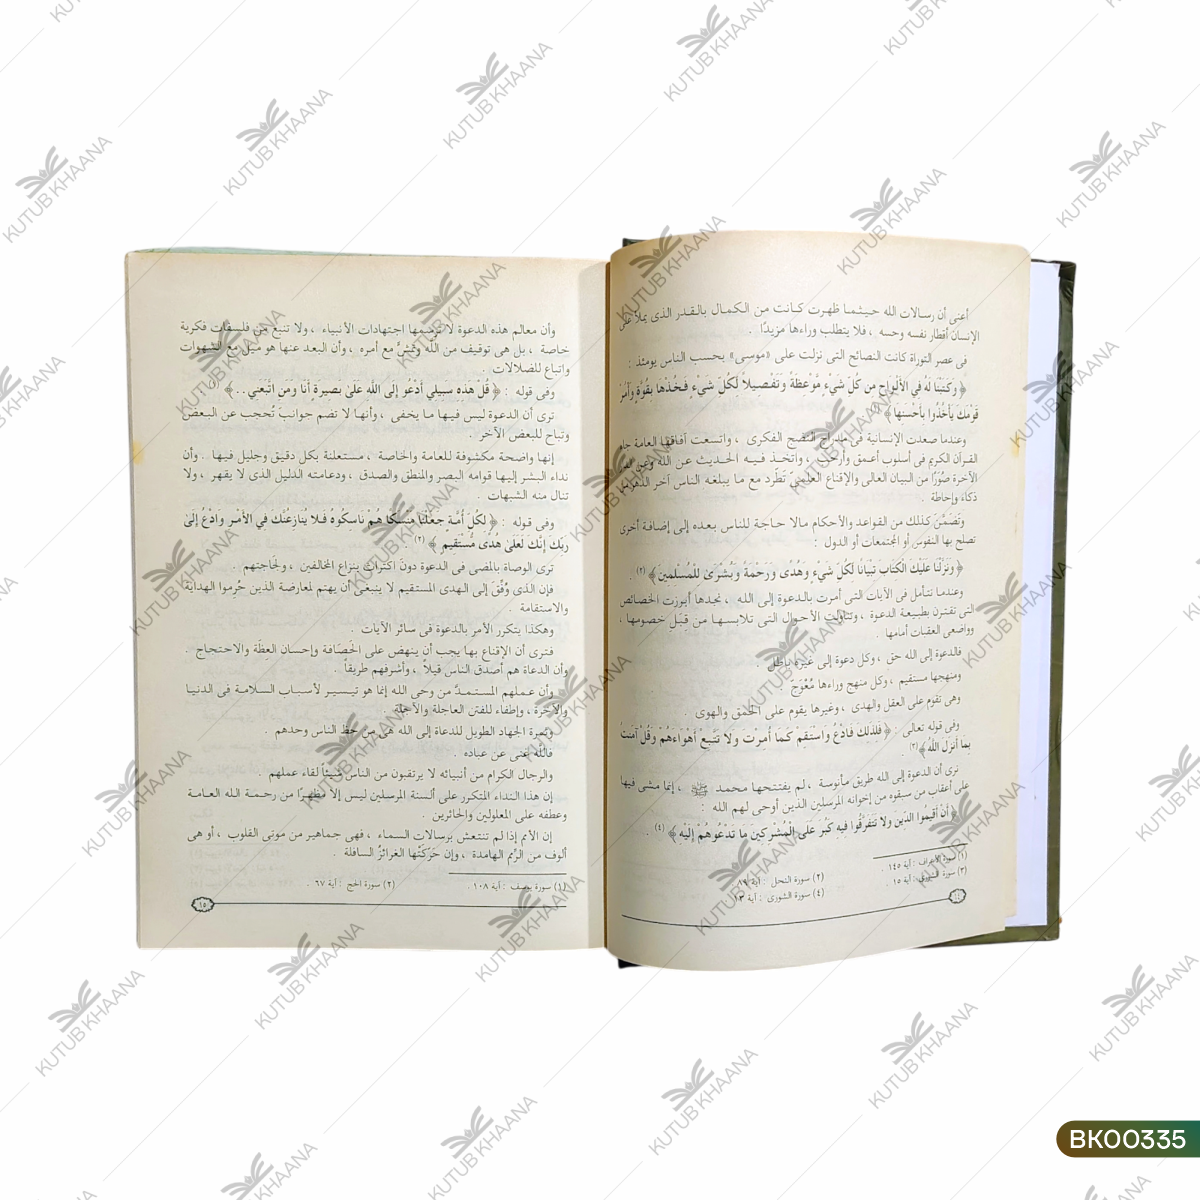 أعنى أن رسالات الله حيثما ظهرت كانت من الكمال بالقدر الذى يملأ على
الإنسان أقطار نفسه وحسه ، فلا يتطلب وراءها مزيدًا .
فى عصر التوراة كانت النصائح التى نزلت على «موسى» بحسب الناس يومئذ :
﴿ وَكَتَبْنَا لَهُ فِي الأَلْوَاحِ مِن كُلِّ شَيْءٍ مَّوْعِظَةً وَتَفْصِيلاً لِّكُلِّ شَيْءٍ فَخُذْهَا بِقُوَّةٍ وَأْمُرْ
قَوْمَكَ يَأْخُذُوا بِأَحْسَنِهَا ﴾ (١)
وعندما صعدت الإنسانية فى مدراج النضج الفكرى ، واتسعت آفاقها العامة جاء
القرآن الكريم فى أسلوب أعمق وأرحب ، واتخذ فيه الحديث عن الله وعن
الآخرة صُوَرًا من البيان العالى والإقناع العلمىّ تَطّرد مع ما يبلغه الناس آخر الدهر من
ذكاء وإحاطة .
وتَضَمَّنَ كذلك من القواعد والأحكام مالا حاجة للناس بعده إلى إضافة أخرى
تصلح بها النفوس أو المجتمعات أو الدول :
﴿ وَنَزَّلْنَا عَلَيْكَ الْكِتَابَ تِبْيَانًا لِّكُلِّ شَيْءٍ وَهُدًى وَرَحْمَةً وَبُشْرَىٰ لِلْمُسْلِمِينَ ﴾ (٢) .
وعندما نتأمل فى الآيات التى أمرت بالدعوة إلى الله ، نجدها أبرزت الخصائص
التى تقترن بطبيعة الدعوة ، وتناولت الأحوال التى تلابسها من قِبَلِ خصومها ،
وواضعى العقبات أمامها .
فالدعوة إلى الله حق ، وكل دعوة إلى غيره باطل .
ومنهجها مستقيم ، وكل منهج وراءها مُعْوَجّ .
وهى تقوم على العقل والهدى ، وغيرها يقوم على الحمق والهوى .
وفى قوله تعالى : ﴿ فَلِذَلِكَ فَادْعُ وَاسْتَقِمْ كَمَا أُمِرْتَ وَلا تَتَّبِعْ أَهْوَاءَهُمْ وَقُلْ آمَنتُ
بِمَا أَنزَلَ اللَّهُ ﴾ (٣)
نرى أن الدعوة إلى الله طريق مأنوسة ، لم يفتتحها محمد ﷺ ، إنما مشى فيها
على أعقاب من سبقوه من إخوانه المرسلين الذين أوحى لهم الله :
﴿ أَنْ أَقِيمُوا الدِّينَ وَلا تَتَفَرَّقُوا فِيهِ كَبُرَ عَلَى الْمُشْرِكِينَ مَا تَدْعُوهُمْ إِلَيْهِ ﴾ (٤) ..
(١) سورة الأعراف : آية ١٤٥
(٢) سورة النحل : آية ٨٩
(٣) سورة الشورى : آية ١٥ .
(٤) سورة الشورى : آية ١٣
١٤
وأن معالم هذه الدعوة لا ترسمها اجتهادات الأنبياء ، ولا تنبع من فلسفات فكرية
خاصة ، بل هى توقيف من الله ومَشْىٌ مع أمره ، وأن البعد عنها هو ميل مع الشهوات
واتباع للضلالات .
وفى قوله : ﴿ قُلْ هَذِهِ سَبِيلِي أَدْعُو إِلَى اللَّهِ عَلَىٰ بَصِيرَةٍ أَنَا وَمَنِ اتَّبَعَنِي .. ﴾ (١) .
نرى أن الدعوة ليس فيها ما يخفى ، وأنها لا تضم جوانبَ تُحجب عن البعض
وتباح للبعض الآخر .
إنها واضحة مكشوفة للعامة والخاصة ، مستعلنة بكل دقيق وجليل فيها . وأن
نداء البشر إليها قوامه البصر والمنطق والصدق ، ودعامته الدليل الذى لا يقهر ، ولا
تنال منه الشبهات .
وفى قوله : ﴿ لِكُلِّ أُمَّةٍ جَعَلْنَا مَنسَكًا هُمْ نَاسِكُوهُ فَلا يُنَازِعُنَّكَ فِي الأَمْرِ وَادْعُ إِلَىٰ
رَبِّكَ إِنَّكَ لَعَلَىٰ هُدًى مُّسْتَقِيمٍ ﴾ (٢) .
ترى الوصاة بالمضى فى الدعوة دونَ اكتراث بنزاع المخالفين ، ولَجاجتهم .
فإن الذى وُفِّقَ إلى الهدى المستقيم لا ينبغى أن يهتم لمعارضة الذين حُرموا الهداية
والاستقامة .
وهكذا يتكرر الأمر بالدعوة فى سائر الآيات .
فترى أن الإقناع بها يجب أن ينهض على الحَصَافة وإحسان العظَة والاحتجاج .
وأن الدعاة هم أصدق الناس قيلاً ، وأشرفهم طريقاً .
وأن عملهم المستمدَّ من وحى الله إنما هو تيسير لأسباب السلامة فى الدنيا
والآخرة ، وإطفاء للفتن العاجلة والآجلة .
وثمرة الجهاد الطويل للدعاة إلى الله هى من حَظِّ الناس وحدهم .
فالله غنى عن عباده .
والرجال الكرام من أنبيائه لا يرتقبون من الناس شيئا لقاء عملهم .
إن هذا النداء المتكرر على ألسنة المرسلين ليس إلا مظهرًا من رحمة الله العامة
وعطفه على المعلولين والحائرين .
إن الأمم إذا لم تنتعش برسالات السماء ، فهى جماهير من موتى القلوب ، أو هى
ألوف من الرِّمم الهامدة ، وإن حَرَّكتْها الغرائزُ السافلة .
(١) سورة يوسف : آية ١٠٨ .
(٢) سورة الحج : آية ٦٧ .
١٥
KUTUB KHAANA
BK00335